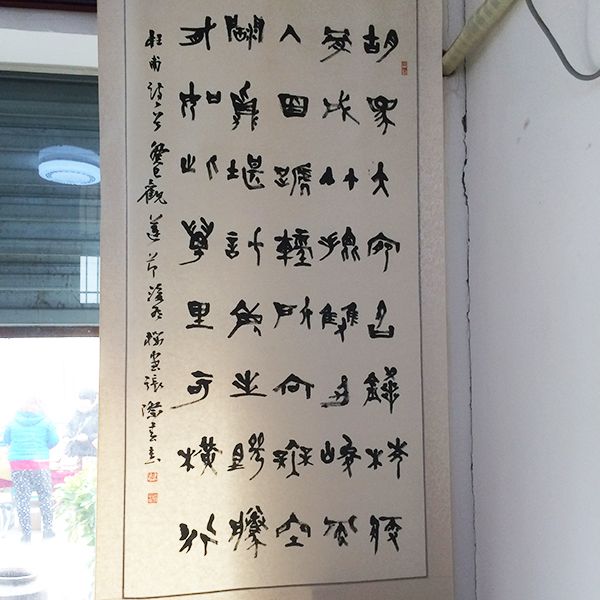 胡馬大宛名鋒稜瘦
骨成竹批雙耳峻風
入四蹄輕所向無空
闊真堪託死生驍騰
有如此萬里可橫行
杜甫詩一首癸巳觀蓮節